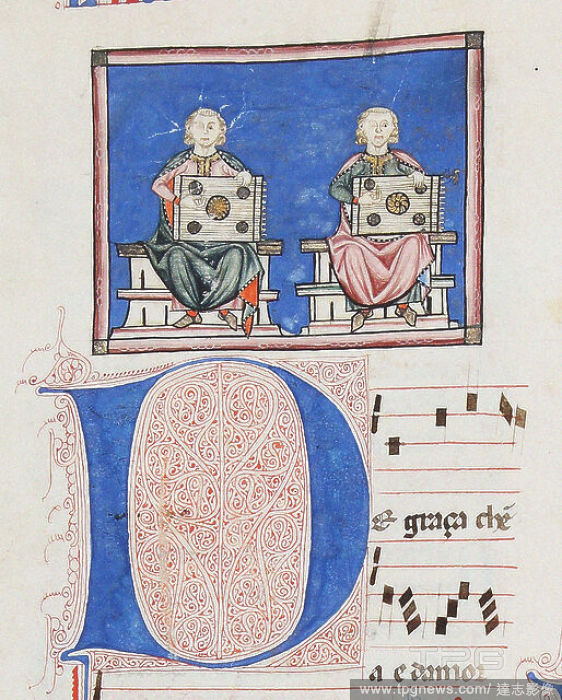 DE graça chẽ
a e damor
www.tpgnews.com/達志影像